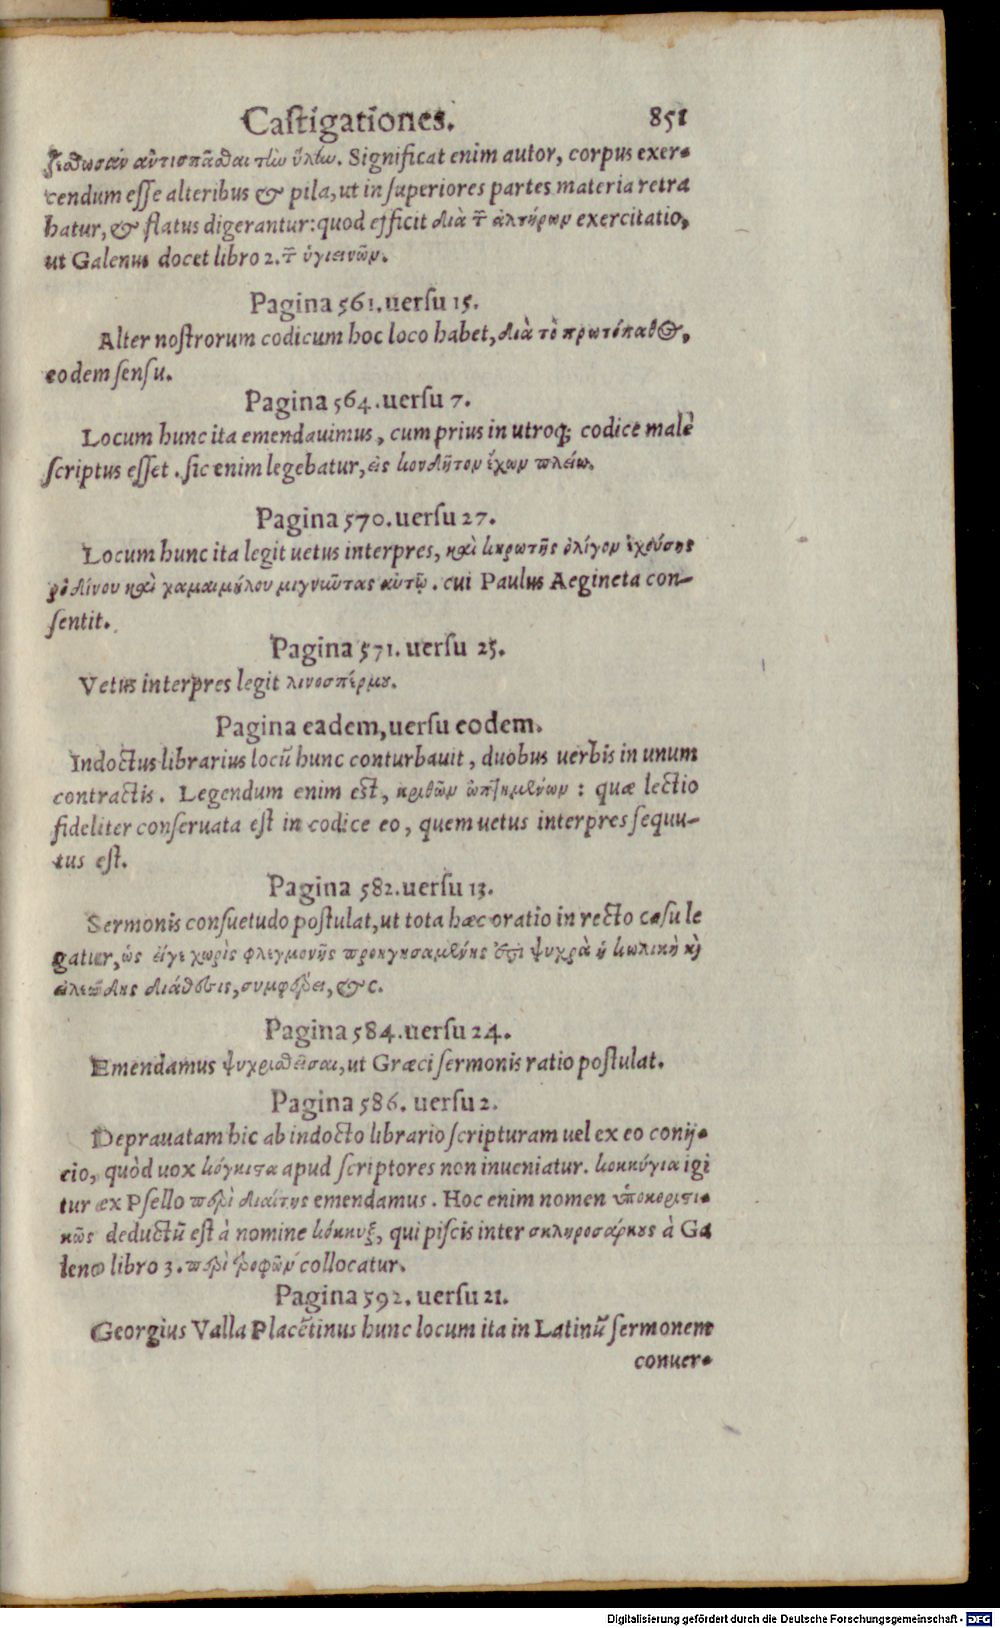 Castigationes. 851
ἀντισπᾶσθαι τὴν ὕλην. Significat enim autor, corpus exer-
cendum esse alteribus & pila, ut in superiores partes materia retra
hatur, & flatus digerantur: quod efficit διὰ τῶν ἁλτήρων exercitatio,
ut Galenus docet libro 2. τῶν ὑγιεινῶν.
Pagina 561. uersu 15.
Alter nostrorum codicum hoc loco habet, διὰ τὸ πρωτόπαθος,
eodem sensu.
Pagina 564. uersu 7.
Locum hunc ita emendauimus, cum prius in utroq; codice malè
scriptus esset. sic enim legebatur, εἰς κονδῆτον ἔχων πλείω.
Pagina 570. uersu 27.
Locum hunc ita legit uetus interpres, καὶ κηρωτῆς ὀλίγον ἐχούσης
ῥοδίνου καὶ χαμαιμήλου μιγνῶντας αὐτῷ. cui Paulus Aegineta con-
sentit.
Pagina 571. uersu 25.
Vetus interpres legit λινοσπέρμου.
Pagina eadem, uersu eodem.
Indoctus librarius locū hunc conturbauit, duobus uerbis in unum
contractis. Legendum enim est, κριθῶν ὠπτημένων: quæ lectio
fideliter conseruata est in codice eo, quem uetus interpres sequu-
tus est.
Pagina 582. uersu 13.
Sermonis consuetudo postulat, ut tota hæc oratio in recto casu le
gatur, ὡς εἴγε χωρὶς φλεγμονῆς προηγησαμένης ἐπὶ ψυχρὰ ἡ κωλικὴ καὶ
εἰλεώδης διάθεσις, συμφέρει, &c.
Pagina 584. uersu 24.
Emendamus ψυχρισθεῖσαι, ut Græci sermonis ratio postulat.
Pagina 586. uersu 2.
Deprauatam hic ab indocto librario scripturam uel ex eo conij-
cio, quòd uox κόγκιτα apud scriptores non inueniatur. κοκκύγια igi
tur ex Psello περὶ διαίτης emendamus. Hoc enim nomen ὑποκοριστι-
κῶς deductū est à nomine κόκκυξ, qui piscis inter σκληροσάρκους à Ga
leno libro 3. περὶ τροφῶν collocatur.
Pagina 592. uersu 21.
Georgius Valla Placētinus hunc locum ita in Latinū sermonem
conuer-
Digitalisierung gefördert durch die Deutsche Forschungsgemeinschaft - DFG